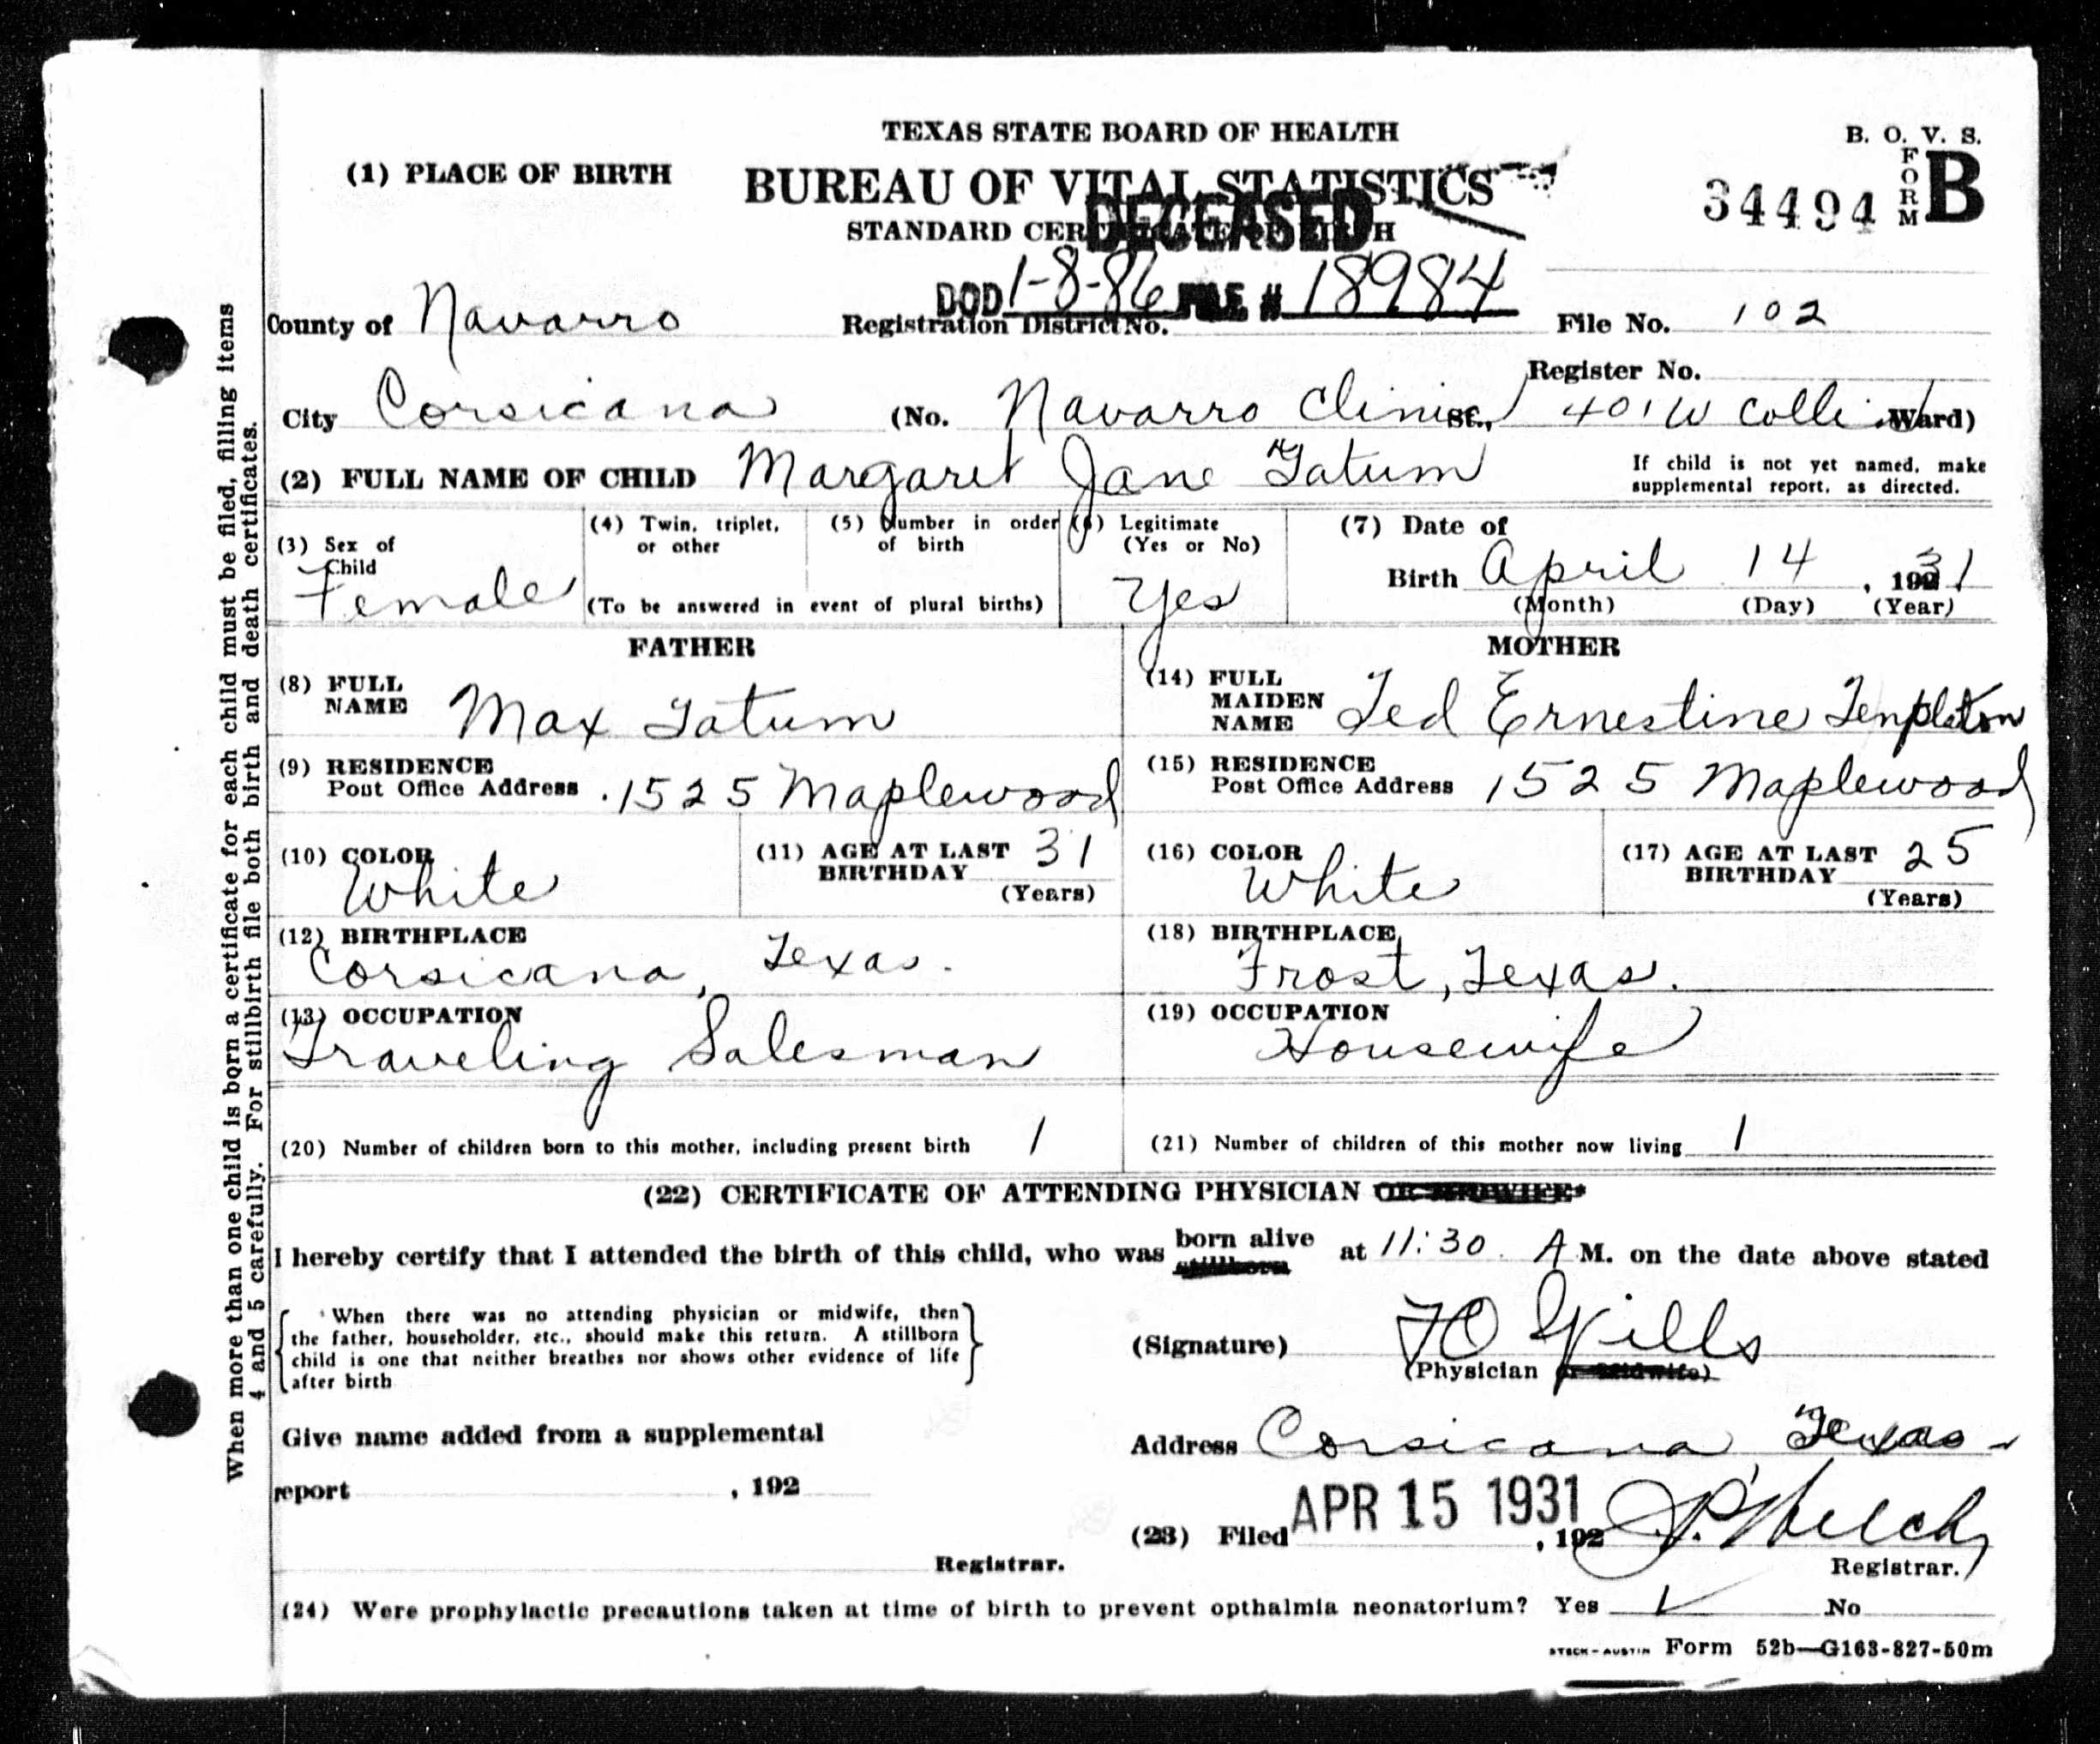 TEXAS STATE BOARD OF HEALTH
B. O. V. S.
(1) PLACE OF BIRTH
BUREAU OF VITAL STATISTICS
34494 FORM B
STANDARD CERTIFICATE OF BIRTH
DECEASED
DOD 1-8-86 FILE # 18984
County of Navarro Registration District No. File No. 102
Register No.
City Corsicana (No. Navarro Clinic St., 401 W Collin Ward)
(2) FULL NAME OF CHILD Margaret Jane Tatum
If child is not yet named, make
supplemental report, as directed.
(3) Sex of
Child
Female
(4) Twin, triplet,
or other
(5) Number in order
of birth
(To be answered in event of plural births)
(6) Legitimate
(Yes or No)
Yes
(7) Date of
Birth April 14, 1931
(Month) (Day) (Year)
FATHER
(8) FULL
NAME Max Tatum
(9) RESIDENCE
Post Office Address 1525 Maplewood
(10) COLOR
White
(11) AGE AT LAST 31
BIRTHDAY
(Years)
(12) BIRTHPLACE
Corsicana, Texas.
(13) OCCUPATION
Traveling Salesman
(20) Number of children born to this mother, including present birth 1
MOTHER
(14) FULL
MAIDEN
NAME Ted Ernestine Templeton
(15) RESIDENCE
Post Office Address 1525 Maplewood
(16) COLOR
White
(17) AGE AT LAST 25
BIRTHDAY
(Years)
(18) BIRTHPLACE
Frost, Texas.
(19) OCCUPATION
Housewife
(21) Number of children of this mother now living 1
(22) CERTIFICATE OF ATTENDING PHYSICIAN OR MIDWIFE*
I hereby certify that I attended the birth of this child, who was born alive at 11:30 A M. on the date above stated
stillborn
When there was no attending physician or midwife, then
the father, householder, etc., should make this return. A stillborn
child is one that neither breathes nor shows other evidence of life
after birth
(Signature) Wills
(Physician or Midwife)
Give name added from a supplemental
Address Corsicana Texas
report , 192
(23) Filed APR 15 1931, 192
Registrar.
Registrar.
(24) Were prophylactic precautions taken at time of birth to prevent opthalmia neonatorium? Yes ✓ No
STECK-AUSTIN Form 52b—G163-827-50m
When more than one child is born a certificate for each child must be filed, filling items
4 and 5 carefully. For stillbirth file both birth and death certificates.